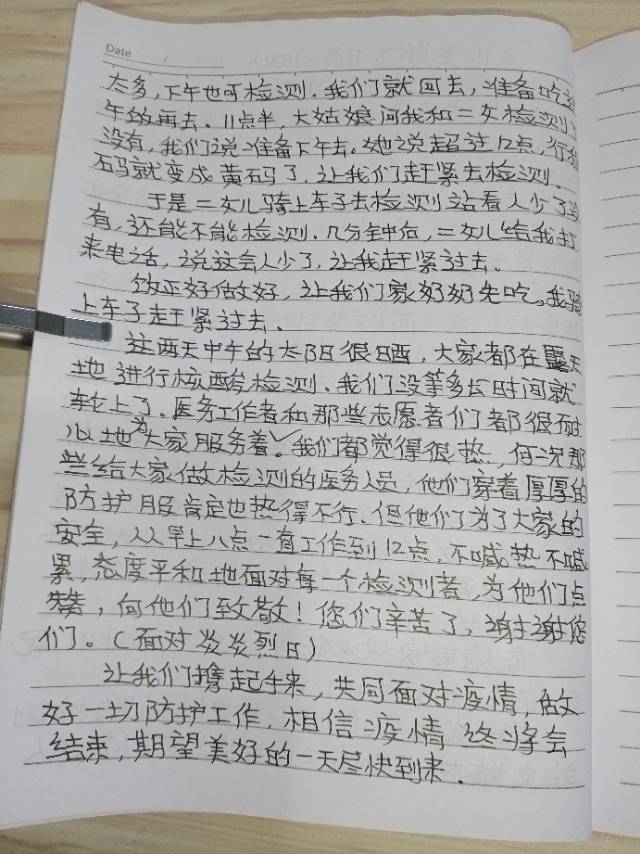 Date
太多,下午也可检测.我们就回去,准备吃
午饭再去.11点半,大姑娘问我和二女检测了
没有,我们说准备下午去.她说超过12点,行程
码就变成黄码了.让我们赶紧去检测.
于是二女儿骑上车子去检测站看人少了没
有,还能不能检测.几分钟后,二女儿给我打
来电话,说这会人少了,让我赶紧过去.
饭正好做好,让我们家奶奶先吃,我骑
上车子赶紧过去.
这两天中午的太阳很晒,大家都在露天
地进行核酸检测.我们没等多长时间就
轮上了.医务工作者和那些志愿者们都很耐
心地为大家服务着.我们都觉得很热,何况那
些给大家做检测的医务人员,他们穿着厚厚的
防护服肯定也热得不行.但他们为了大家的
安全,从早上八点一直工作到12点,不喊热不喊
累,态度平和地面对每一个检测者,为他们点
赞,向他们致敬!您们辛苦了,谢谢您
们。(面对炎炎烈日)
让我们携起手来,共同面对疫情,做
好一切防护工作.相信疫情终将会
结束,期望美好的一天尽快到来.